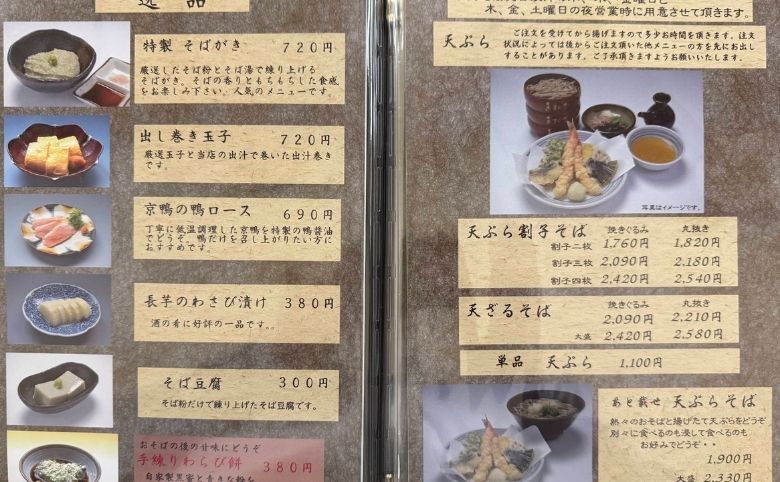 逸品
特製 そばがき 720円
厳選したそば粉とそば湯で練り上げる
そばがき、そばの香りともちもちした食感
をお楽しみ下さい。人気のメニューです。
出し巻き玉子 720円
厳選玉子と当店の出汁で巻いた出汁巻き
です。
京鴨の鴨ロース 690円
丁寧に低温調理した京鴨を特製の鴨醤油
でどうぞ。鴨だけを召し上がりたい方に
おすすめです。
長芋のわさび漬け 380円
酒の肴に好評の一品です。。
そば豆腐 300円
そば粉だけで練り上げたそば豆腐です。
おそばの後の甘味にどうぞ
手練りわらび餅 380円
自家製黒蜜と青きな粉を
木、金、土曜日の夜営業時に用意させて頂きます。
天ぷら
ご注文を受けてから揚げますので多少お時間を頂きます。注文
状況によっては後からご注文頂いた他メニューの方を先にお出し
することがあります。ご了承頂きますようお願いいたします。
写真はイメージです。
天ぷら割子そば 挽きぐるみ 丸抜き
割子二枚 1,760円 1,820円
割子三枚 2,090円 2,180円
割子四枚 2,420円 2,540円
天ざるそば 挽きぐるみ 丸抜き
2,090円 2,210円
大盛 2,420円 2,580円
単品 天ぷら 1,100円
あと載せ 天ぷらそば
熱々のおそばと揚げたて天ぷらをどうぞ
別々に食べるのも浸して食べるのも
お好みでどうぞ・・
1,900円
大盛 2,330円